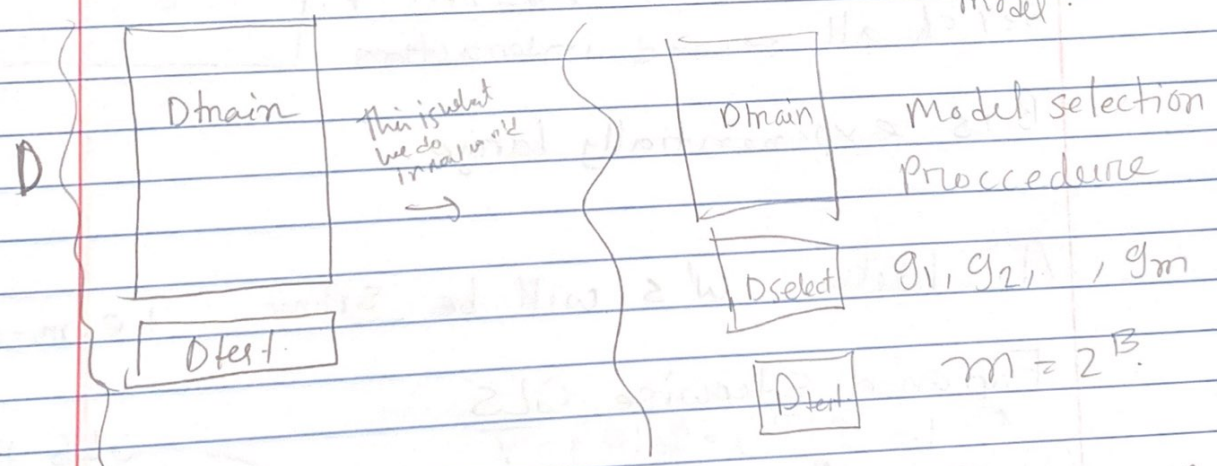 model.
D
Dtrain
This is what
we do
in real w'ld
→
Dtest.
Dtrain
Model selection
Proccedure
Dselect
g1, g2, , gm
Dtest
m = 2^B.